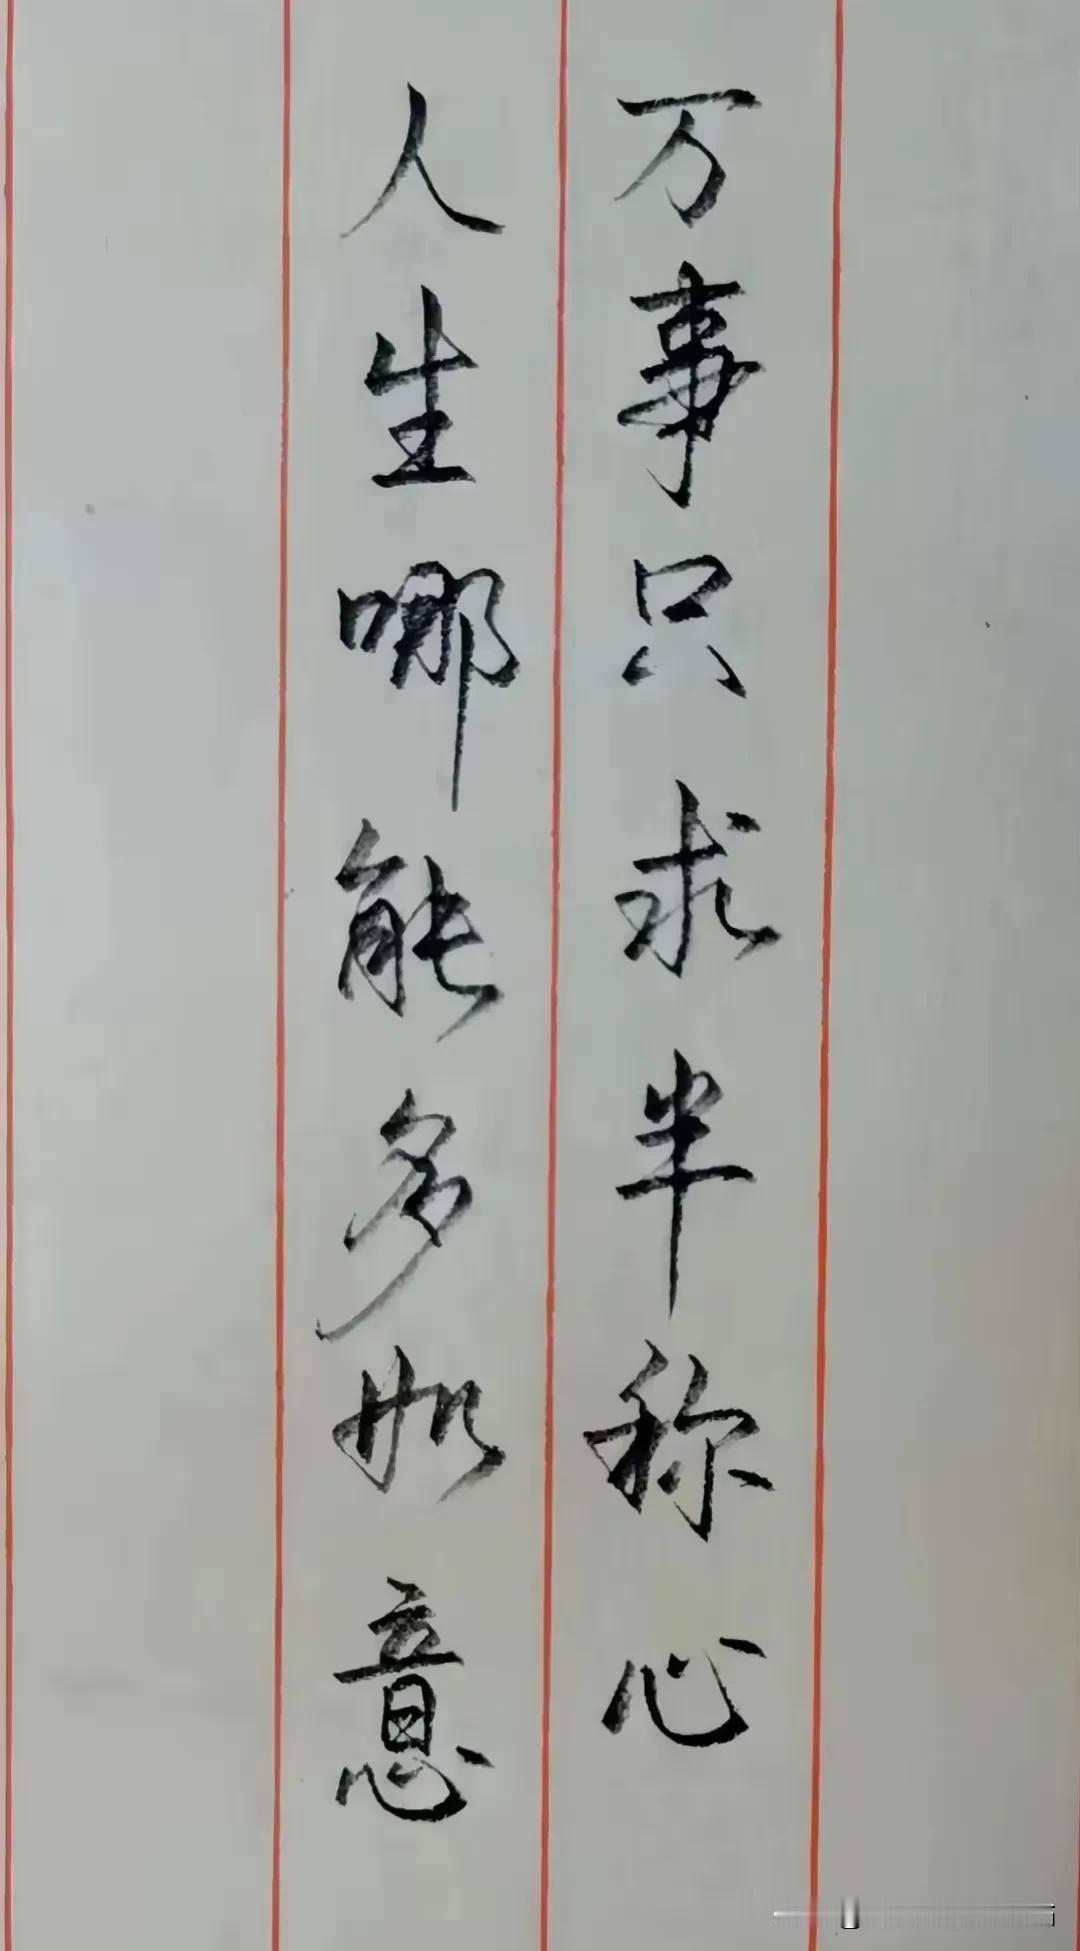 万事只求半称心
人生哪能多如意